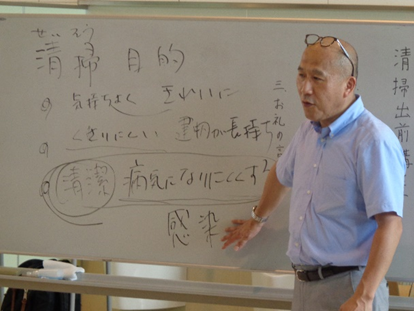 清掃 目的
気持ちよく きれいに
くさりにくい 建物が長持ち
清潔 病気になりにくくす
感染
三、お礼の
清掃出前講